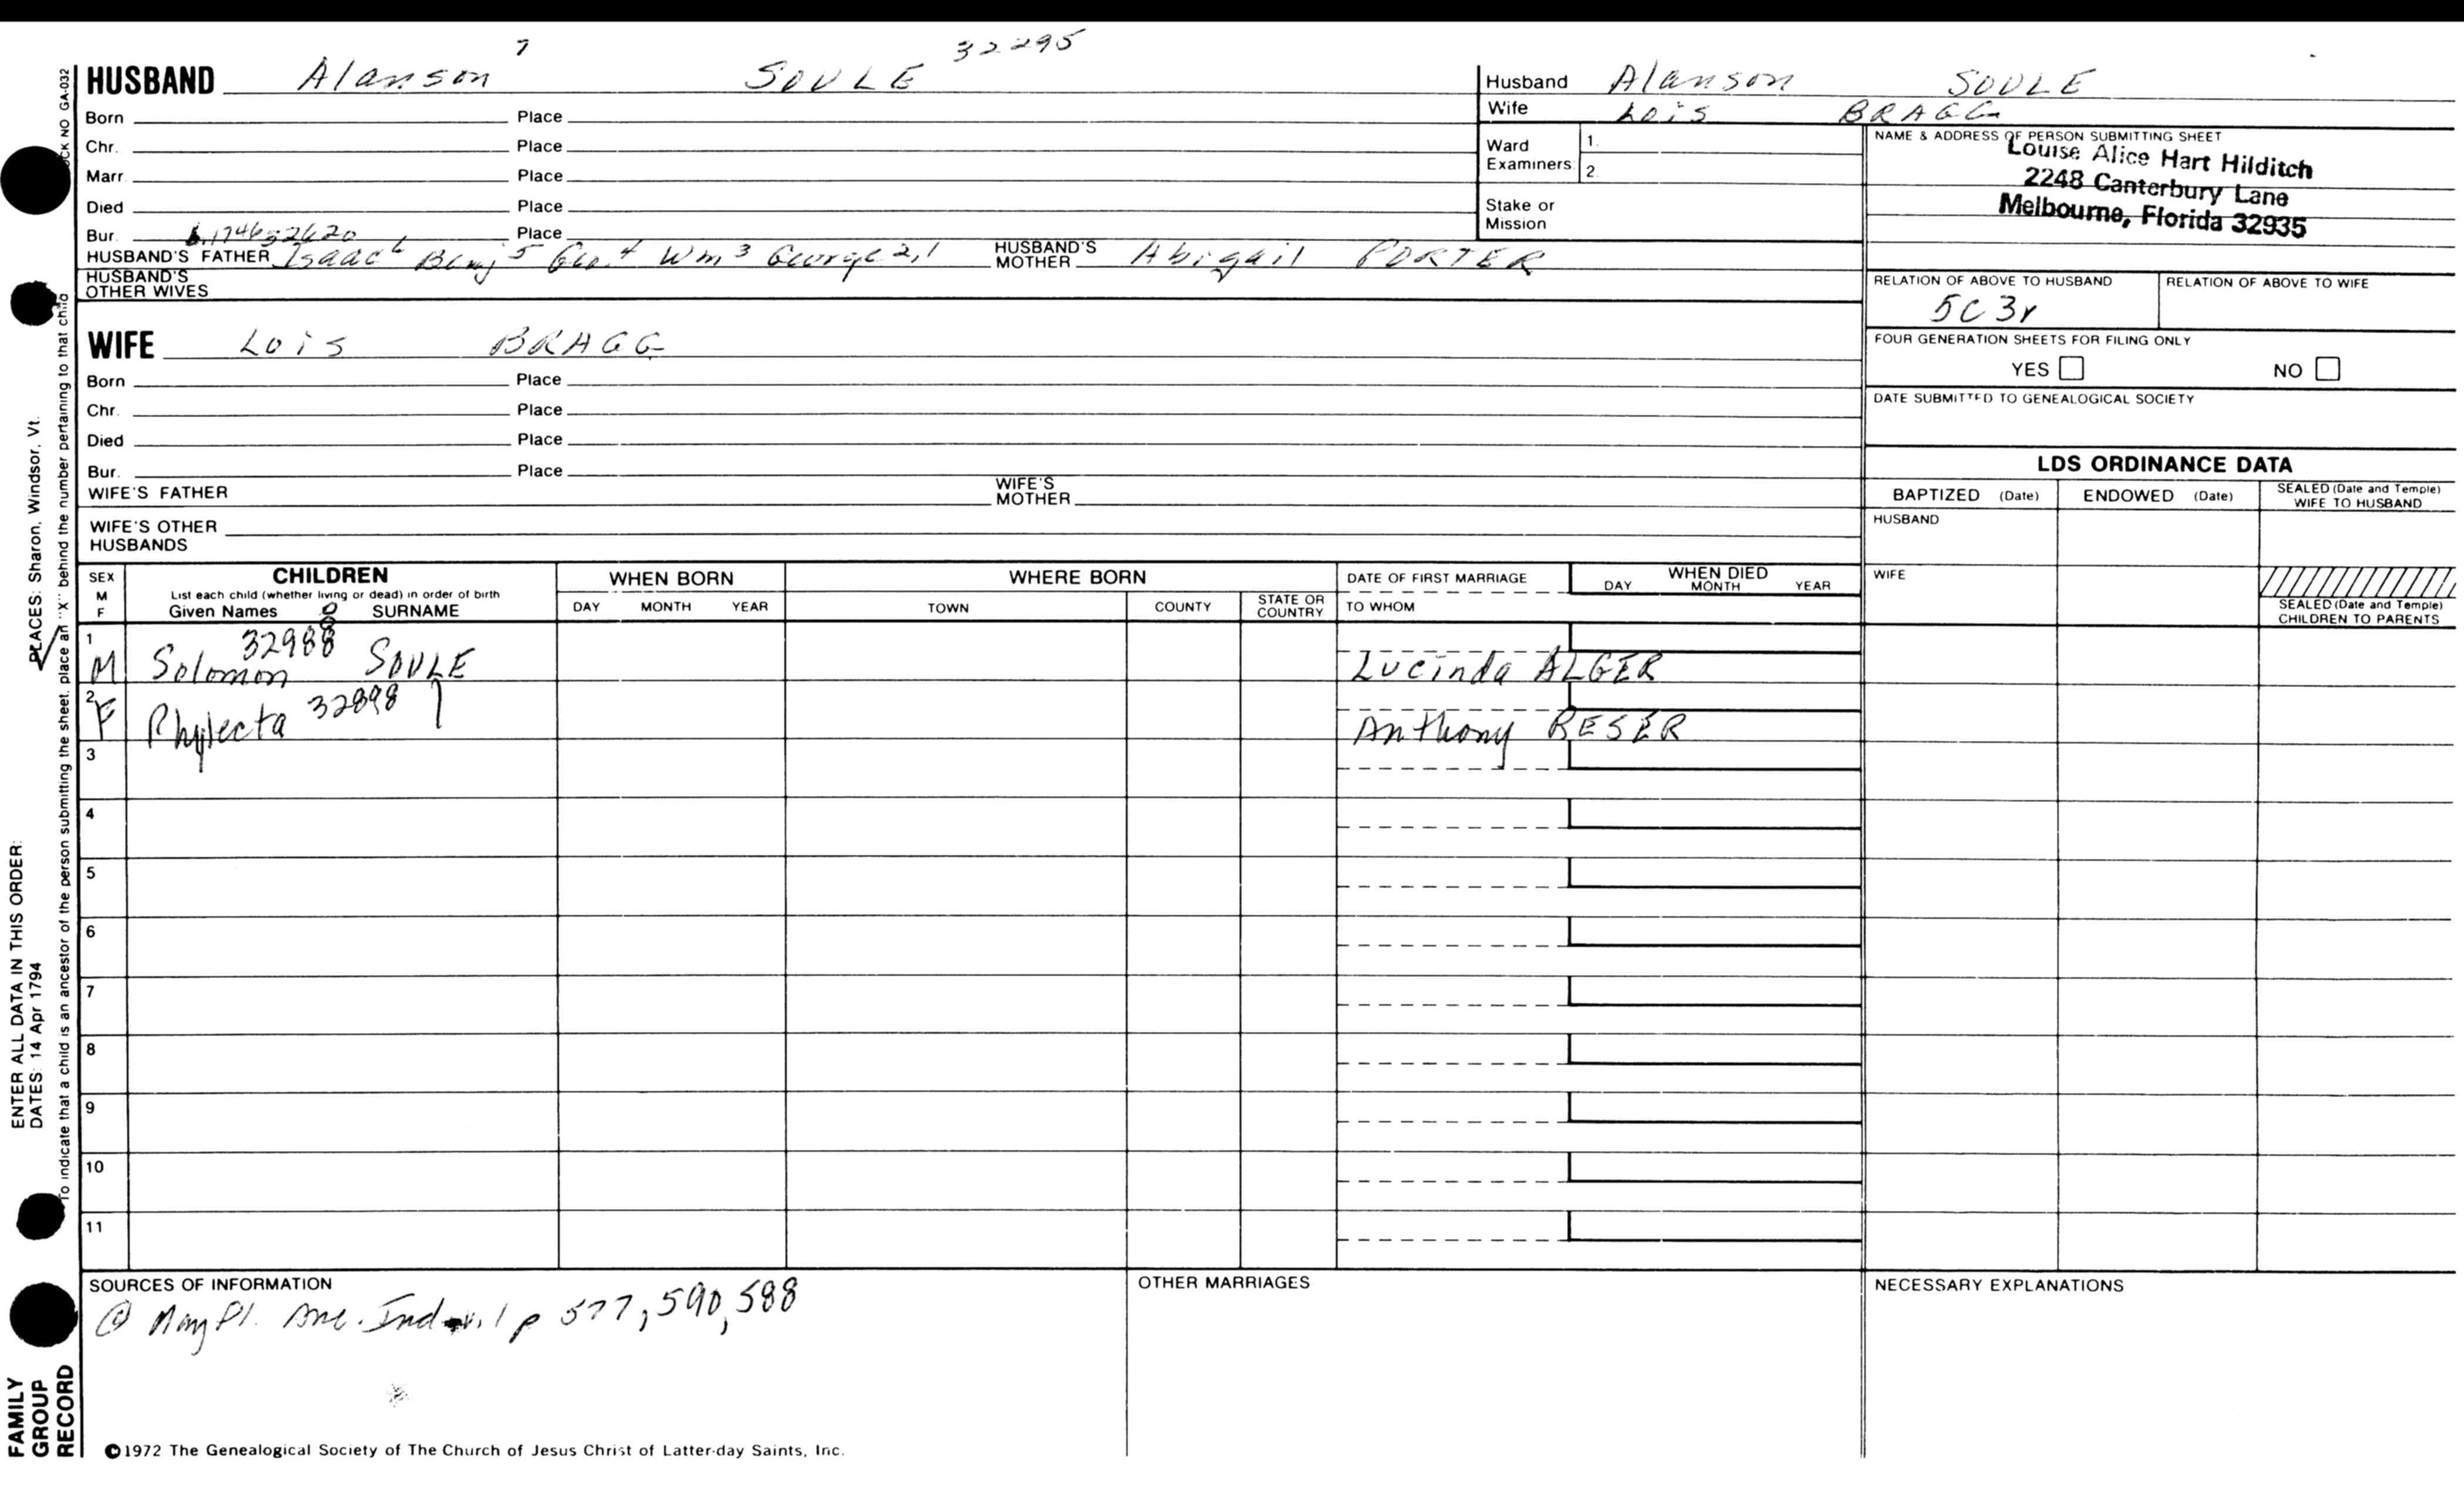 7 32295
HUSBAND Alanson SOULE
Born Place
Chr. Place
Marr Place
Died Place
Bur. Place
HUSBAND'S FATHER Isaac 6 Benj 5 Geo. 4 Wm 3 George 2,1 HUSBAND'S MOTHER Abigail PORTER
HUSBAND'S OTHER WIVES
Husband Alanson SOULE
Wife Lois BRAGG
Ward Examiners: 1. 2.
Stake or Mission
NAME & ADDRESS OF PERSON SUBMITTING SHEET
Louise Alice Hart Hilditch
2248 Canterbury Lane
Melbourne, Florida 32935
RELATION OF ABOVE TO HUSBAND RELATION OF ABOVE TO WIFE
5C 3r
FOUR GENERATION SHEETS FOR FILING ONLY
YES NO
DATE SUBMITTED TO GENEALOGICAL SOCIETY
WIFE Lois BRAGG
Born Place
Chr. Place
Died Place
Bur. Place
WIFE'S FATHER WIFE'S MOTHER
WIFE'S OTHER HUSBANDS
LDS ORDINANCE DATA
BAPTIZED (Date) ENDOWED (Date) SEALED (Date and Temple) WIFE TO HUSBAND
HUSBAND
WIFE
SEALED (Date and Temple) CHILDREN TO PARENTS
SEX M F
CHILDREN
List each child (whether living or dead) in order of birth
Given Names 8 SURNAME
WHEN BORN
DAY MONTH YEAR
WHERE BORN
TOWN COUNTY STATE OR COUNTRY
DATE OF FIRST MARRIAGE
TO WHOM
WHEN DIED
DAY MONTH YEAR
1 M Solomon 32988 SOULE Lucinda ALGER
2 F Phylecta 32898 Anthony RESER
3
4
5
6
7
8
9
10
11
SOURCES OF INFORMATION
Ind v. 1 p 577, 590, 588
OTHER MARRIAGES
NECESSARY EXPLANATIONS
©1972 The Genealogical Society of The Church of Jesus Christ of Latter-day Saints, Inc.
FAMILY GROUP RECORD
ENTER ALL DATA IN THIS ORDER:
DATES: 14 Apr 1794
PLACES: Sharon, Windsor, Vt.
To indicate that a child is an ancestor of the person submitting the sheet, place an "X" behind the number pertaining to that child
NO GA-032